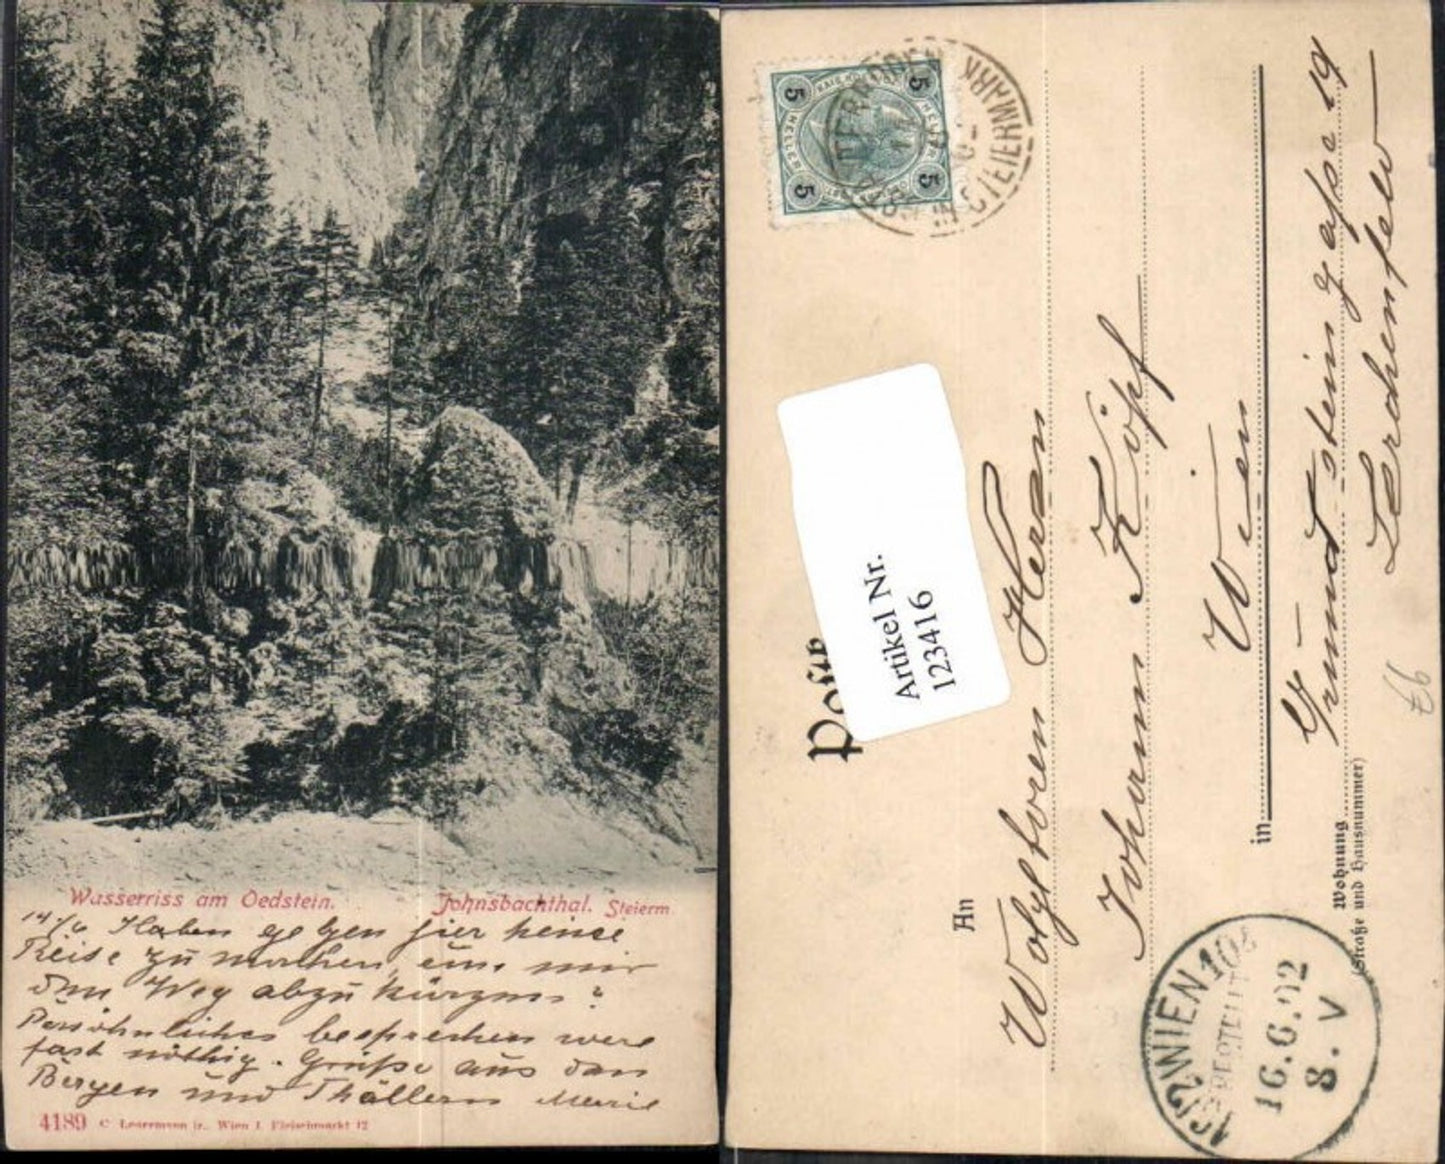 Wasserriss am Oedstein. Johnsbachthal. Steierm.
14./6 Haben gehen hier keine
Reise zu machen, um mir
den Weg abzukürzen?
Persöhnliches besprechen were
fast nöthig. Grüße aus den
Bergen und Thällern Marie
4189 C Ledermann jr., Wien I. Fleischmarkt 12
5 5
5 5
STEIERMARK
Artikel Nr.
123416
An
Wohlgeboren Herrn
Johann Köpf
in Wien
Wohnung Grundsteingasse 19
(Straße und Hausnummer)
Lerchenfeld
16/2 WIEN 10
BESTELLT
16.6.02
8.V